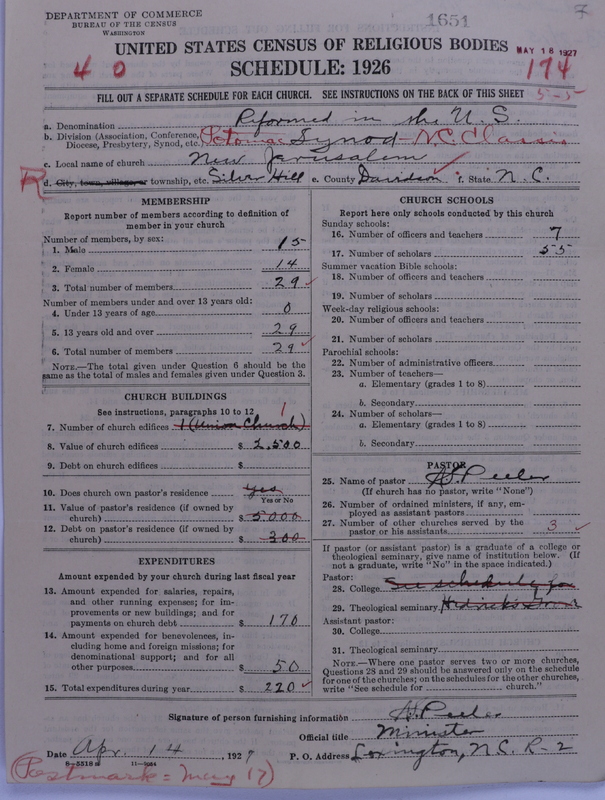 DEPARTMENT OF COMMERCE
BUREAU OF THE CENSUS
WASHINGTON
1651
7
UNITED STATES CENSUS OF RELIGIOUS BODIES
MAY 18 1927
40
SCHEDULE: 1926
174
FILL OUT A SEPARATE SCHEDULE FOR EACH CHURCH. SEE INSTRUCTIONS ON THE BACK OF THIS SHEET
5-5
a. Denomination Reformed in the U.S.
b. Division (Association, Conference, Diocese, Presbytery, Synod, etc.) Potomac Synod N.C. Classis
c. Local name of church New Jerusalem
R d. City, town, village, or township, etc. Silver Hill e. County Davidson f. State N.C.
MEMBERSHIP
Report number of members according to definition of
member in your church
Number of members, by sex:
1. Male 15
2. Female 14
3. Total number of members 29
Number of members under and over 13 years old:
4. Under 13 years of age 0
5. 13 years old and over 29
6. Total number of members 29
NOTE.—The total given under Question 6 should be the
same as the total of males and females given under Question 3.
CHURCH BUILDINGS
See instructions, paragraphs 10 to 12
1
7. Number of church edifices 1 (Union Church)
8. Value of church edifices $ 2,500
9. Debt on church edifices $
10. Does church own pastor's residence yes
Yes or No
11. Value of pastor's residence (if owned by
church) $ 5000
12. Debt on pastor's residence (if owned by
church) $ 300
EXPENDITURES
Amount expended by your church during last fiscal year
13. Amount expended for salaries, repairs,
and other running expenses; for im-
provements or new buildings; and for
payments on church debt $ 170
14. Amount expended for benevolences, in-
cluding home and foreign missions; for
denominational support; and for all
other purposes $ 50
15. Total expenditures during year $ 220
CHURCH SCHOOLS
Report here only schools conducted by this church
Sunday schools:
16. Number of officers and teachers 7
17. Number of scholars 55
Summer vacation Bible schools:
18. Number of officers and teachers
19. Number of scholars
Week-day religious schools:
20. Number of officers and teachers
21. Number of scholars
Parochial schools:
22. Number of administrative officers
23. Number of teachers—
a. Elementary (grades 1 to 8)
b. Secondary
24. Number of scholars—
a. Elementary (grades 1 to 8)
b. Secondary
PASTOR
25. Name of pastor Peeler
(If church has no pastor, write "None")
26. Number of ordained ministers, if any, em-
ployed as assistant pastors
27. Number of other churches served by the
pastor or his assistants 3
If pastor (or assistant pastor) is a graduate of a college or
theological seminary, give name of institution below. (If
not a graduate, write "No" in the space indicated.)
Pastor:
28. College See schedule for
29. Theological seminary
Assistant pastor:
30. College
31. Theological seminary
NOTE.—Where one pastor serves two or more churches,
Questions 28 and 29 should be answered only on the schedule
for one of the churches; on the schedules for the other churches,
write "See schedule for church."
Signature of person furnishing information Peeler
Official title Minister
Date Apr. 14, 1927 P. O. Address Lexington, N.C. R-2
8-5318 a 11-9084
(Postmark = May 17)